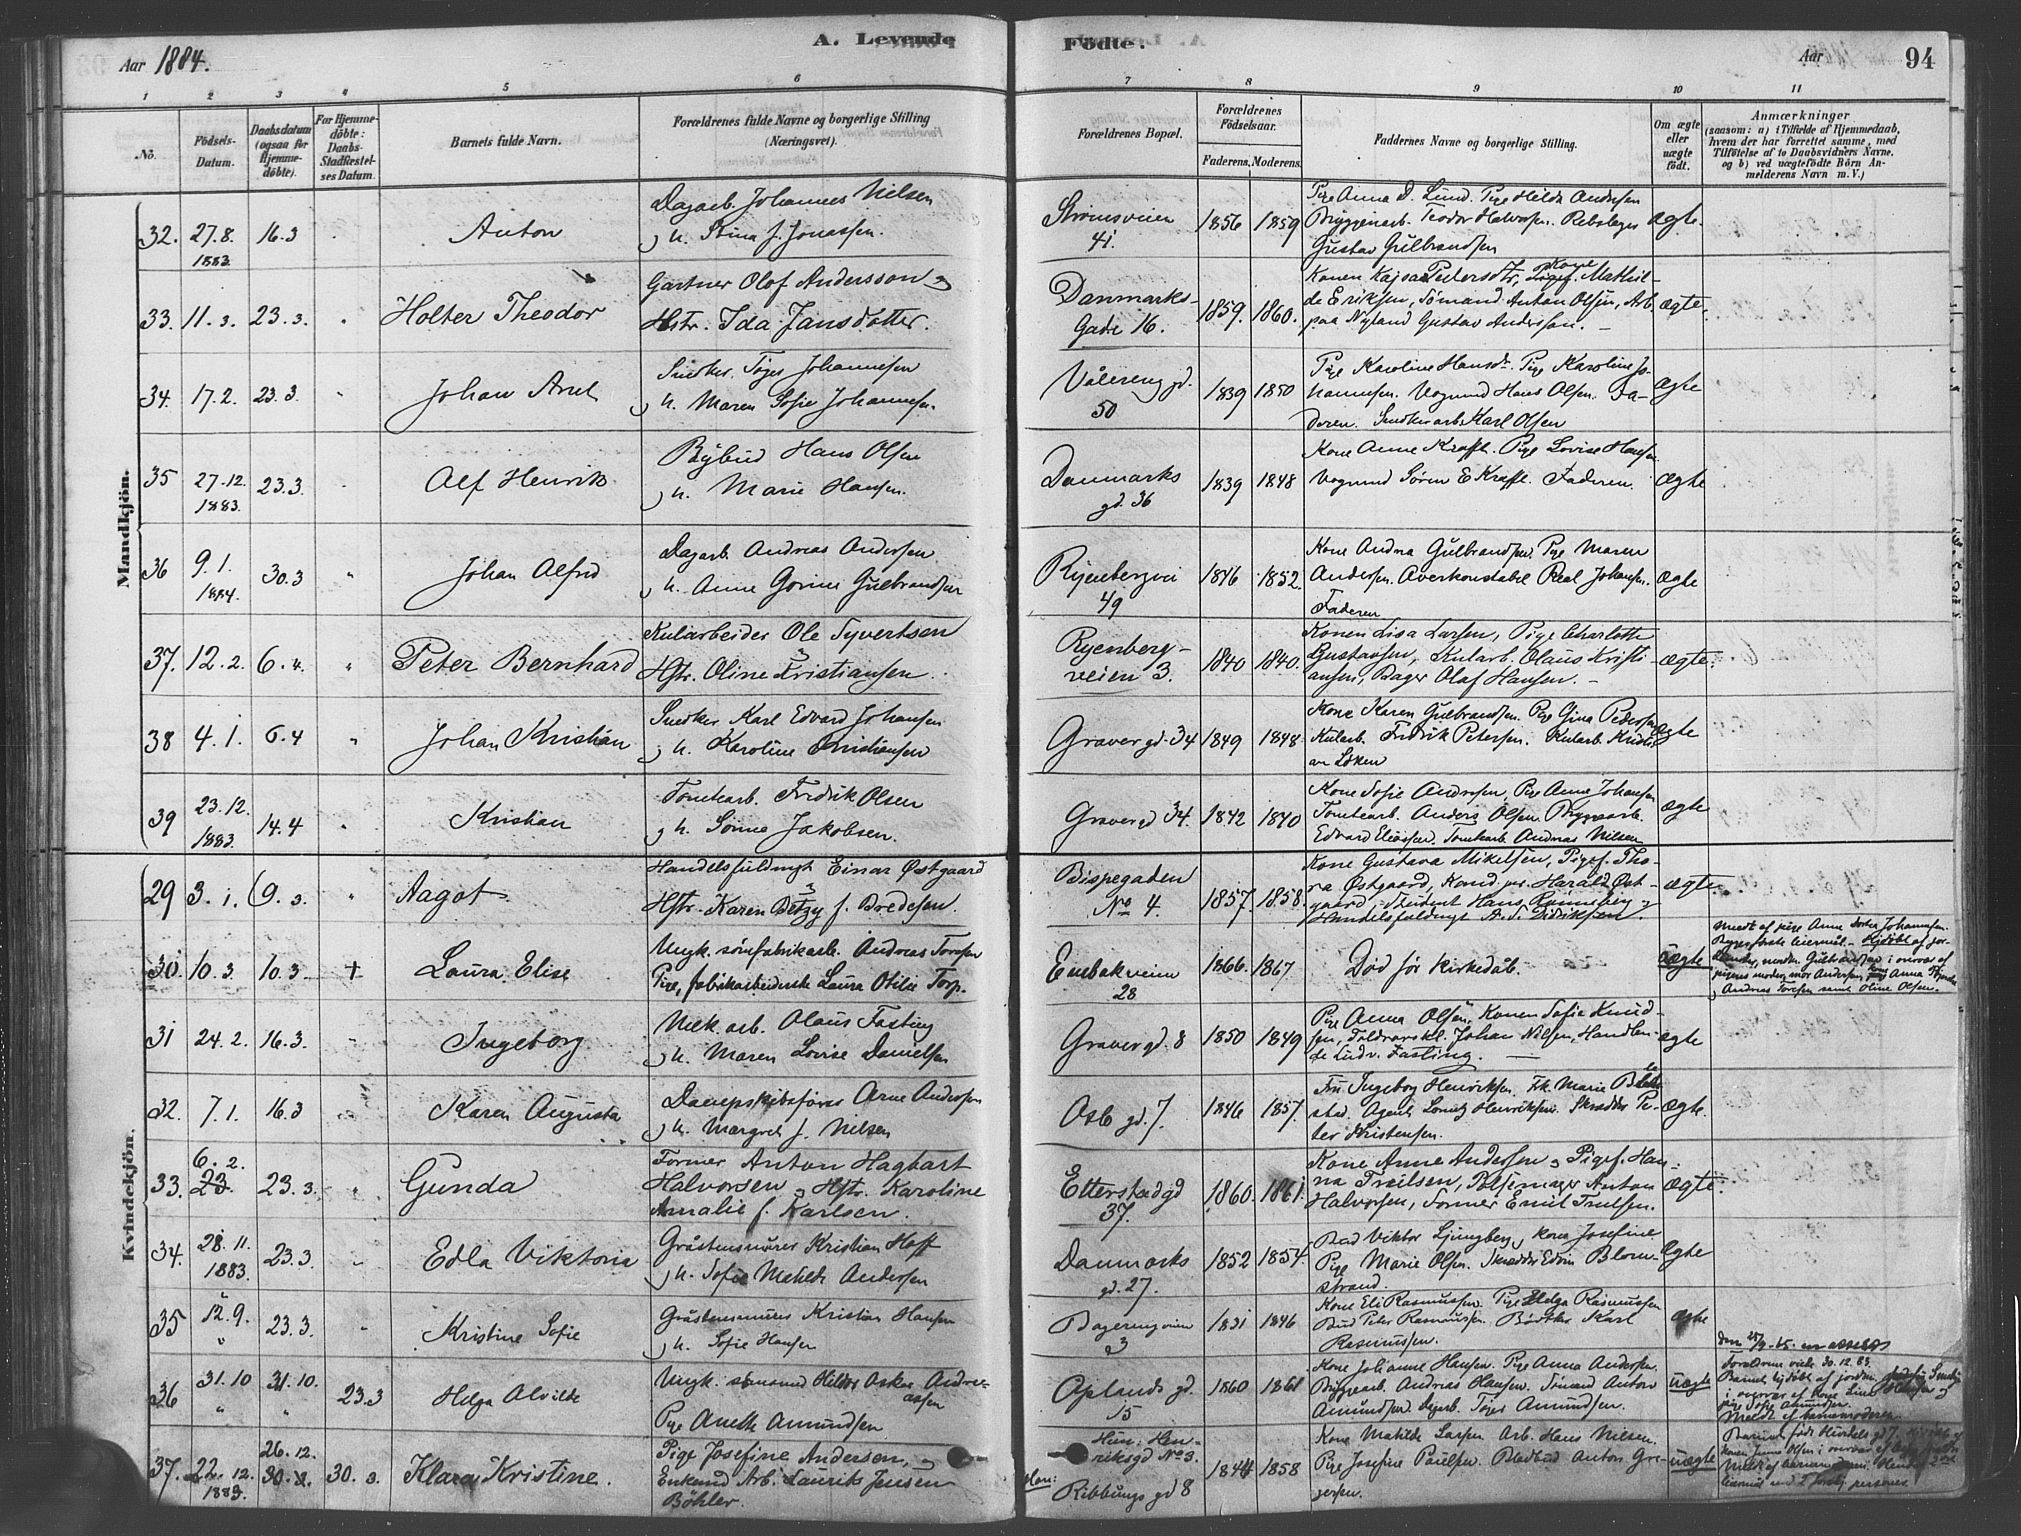 Aar 1884.
A. Levende Födte.
Aar
94
1 2 3 4 5 6 7 8 9 10 11
No.
Födsels-Datum.
Daabsdatum (ogsaa for Hjemme-döbte).
For Hjemme-döbte: Daabs-Stadfæstel-ses Datum.
Barnets fulde Navn.
Forældrenes fulde Navne og borgerlige Stilling (Næringsvei).
Forældrenes Bopæl.
Forældrenes Födselsaar.
Faderens. Moderens.
Faddernes Navne og borgerlige Stilling.
Om ægte eller uægte födt.
Anmærkninger
(saasom: a) i Tilfælde af Hjemmedaab, hvem der har forrettet samme, med Tilföielse af to Daabsvidners Navne, og b) ved uægtefödte Börn An-melderens Navn m. V.)
Mandkjön.
32. 27.8. 1883. 16.3 Anton
Dagarb. Johannes Nielsen
og H. Stina f. Jonassen.
Strömsveien 41. 1856 1859
Pige Anna D. Lund. Pige Hilda Andersen
Bryggeriarb. Teodor Halvorsen. Rebslager
Gustav Gulbrandsen
ægte.
33. 11.3. 23.3. Holter Theodor
Gartner Olof Andersson og
Hstr. Ida Jansdotter.
Danmarks-Gade 16. 1859. 1860.
Konen Kajsa Pedersdtr, Kone Mathil-
de Eriksen, Sömand Anton Olsen, Arb.
paa Nyland Gustav Andersson.
ægte.
34. 17.2. 23.3. Johan Arnt
Snedker Johannesen
og H. Maren Sofie Johannesen.
Vålereng gd. 50 1839 1850
Pige Karoline Hansdr. Pige Karoline Jo-
hannesen. Vognmd Hans Olsen. Fa-
deren. Snedkerarb. Karl Olsen
ægte
35 27.12. 1883. 23.3. Alf Henrik
Bybud Hans Olsen
og H. Marie Hansen.
Danmarks gd. 36 1839 1848
Kone Anne Krafft. Pige Lovise Hansen
Vognmd Sören E Krafft. Faderen.
ægte
36 9.1. 1884. 30.3 Johan Alfred
Dagarb. Andreas Andersen
og H. Anne Gorine Gulbrandsen
Ryenbergvei 49 1846 1852.
Kone Andrea Gulbrandsen. Pige Maren
Andersen. Johansen.
Faderen
ægte
37. 12.2. 6.4. Peter Bernhard
Kularbeider Ole Syvertsen
og Hstr. Oline Kristiansen.
Ryenberg-veien 3. 1840 1840.
Konen Lisa Larsen, Pige Charlotte
Gustavsen, Kularb. Olaus Kristi-
ansen, Bager Olaf Hansen.
ægte.
38 4.1. 6.4 Johan Kristian
Snedker Karl Edvard Johansen
og H. Karoline Kristiansen
Graver gd. 34 1849 1848
Kone Karen Gulbrandsen. Pige Gina Pedersen
Kularb. Fredrik Petersen. Kularb. Kristi-
an Löken
ægte
39 23.12. 1883. 14.4 Kristian
Tomtearb. Fredrik Olsen
og H. Jakobsen.
Graver gd 34. 1842 1840
Kone Sofie Andersen, Pige Anne Johansen
Tomtearb. Anders Olsen. Bryggearb.
Edvard Eliassen. Tomtearb. Andreas Nilsen
ægte
Kvindekjön.
29 3.1. 9.3. Aagot
Handelsfuldmgt Einar Østgaard
og Hstr. Karen Betzy f. Bredesen.
Bispegaden No 4. 1857. 1858.
Kone Gustava Mikelsen, Pigef. Tho-
ra Østgaard, Kand. Harald Øst-
gaard, Student Hans Rönneberg og
Handelsfuldmgt A. S. Didriksen.
ægte.
30. 10.3. 10.3 + Laura Elise
Ungk. Andreas Toresen
Pige, fabrikarbeiderske Laura Otilie Torp.
Enebakveien 28 1866. 1867
Död för kirkedåb.
uægte
Meldt af pige Anne Johannesen.
Andreas Toresen samt Oline Olsen.
31 24.2. 16.3. Ingeborg
Mek. arb. Olaus Fasting
og H. Maren Lovise Danielsen
Graver gd. 8 1850 1849
Pige Anna Olsen, Konen Sofie Knud-
sen, Johan Nilsen, Handlen-
de Ludv. Fasting.
ægte
32. 7.1. 16.3 Karen Augusta
Dampskibsförer Arne Andersen
og H. Margret f. Nilsen
Oslo gd. 7. 1846 1857.
Fru Ingeborg Henriksen. Frk. Marie
Agent Henriksen. Skrædder Pe-
ter Kristensen.
ægte.
33. 6.2. 23 23.3. Gunda
Former Anton Hagbart
Halvorsen og Hstr. Karoline
Amalie f. Karlsen.
Etterstad gd 37. 1860. 1861.
Kone Anne Andersen og Pigef. Han-
na Truelsen, Anton
Halvorsen, Former Emil Truelsen.
ægte.
34. 28.11. 1883. 23.3. Edla Viktoria
Gråstensmurer Kristian Hoff
og H. Sofie Matilde Andersen
Danmarks gd. 27. 1852 1854.
Bud Viktor Ljungberg og kone Josefine
Pige Marie Olsen. Skrædder Edvin Blom-
strand.
ægte
35 12.9. " 23.3. Kristine Sofie
Gråstensmurer Kristian Hansen
og H. Sofie Hansen
3 1851 1846
Kone Eli Rasmussen. Pige Helga Rasmussen
Bud Peter Rasmussen. Karl
Rasmussen.
ægte
36 31.10 " 31.10. " 23.3 Helga Alvilde
Ungk. sömand Oskar Andre-
assen
Pige Anette Amundsen
Oplands gd. 15 1860 1861
Kone Johanne Hansen. Pige Anna Andersen.
Bryggearb. Andreas Hansen. Sömand Anton
Amundsen. Dagarb. Amundsen.
uægte
Forældrene viede 30.12.83.
Meldt af barnemoderen.
37. 22.12. 1883. 26.12. 30.3. Klara Kristine.
Pige Josefine Andersen,
Enkemd Arb. Laurits Jensen
Böhler.
Hun: Hen-riksgd No 3.
Ribbungs gd 8 1844 1858
Kone Matilde Larsen Arb. Hans Nilsen.
Pige Josefine Paulsen. Anton Gre-
gersen.
uægte